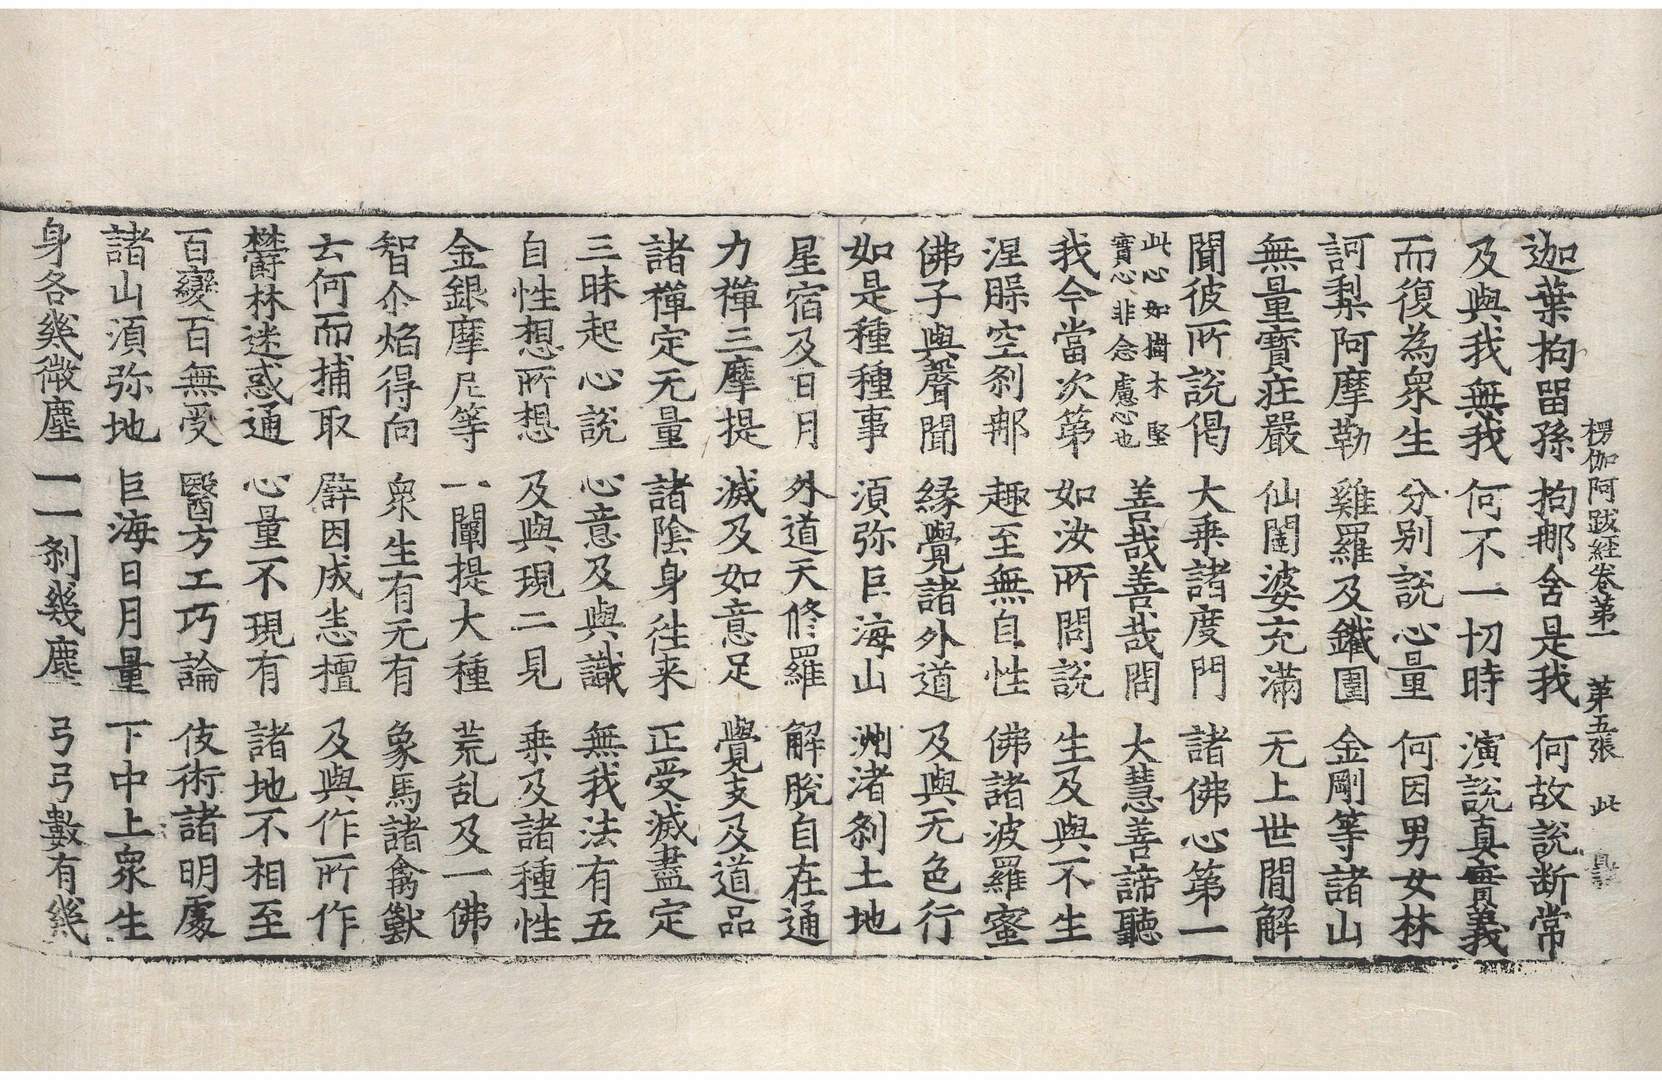 楞伽阿跋經卷第一　第五張　此
迦葉拘留孫　拘𨚗舍是我　何故說断常
及與我無我　何不一切時　演說真實義
而復為衆生　分別說心量　何因男女林
訶梨阿摩勒　雞羅及鐵圍　金剛等諸山
無量寶莊嚴　仙闥婆充滿　无上世間解
聞彼所說偈　大乗諸度門　諸佛心第一
此心如樹木堅
實心非念慮心也
善哉善哉問　大慧善諦聽
我今當次第　如汝所問說　生及與不生
涅槃空刹𨚗　趣至無自性　佛諸波羅蜜
佛子與聲聞　緣覺諸外道　及與无色行
如是種種事　湏弥巨海山　洲渚刹土地
星宿及日月　外道天修羅　解脫自在通
力禪三摩提　滅及如意足　覺支及道品
諸禪定无量　諸陰身往来　正受滅盡定
三昧起心說　心意及與識　無我法有五
自性想所想　及與現二見　乗及諸種性
金銀摩尼等　一闡提大種　荒乱及一佛
智尒焰得向　衆生有无有　象馬諸禽獸
去何而捕取　譬因成悉檀　及與作所作
欝林迷惑通　心量不現有　諸地不相至
百變百無受　醫方工巧論　伎術諸明處
諸山湏弥地　巨海日月量　下中上衆生
身各幾微塵　一一刹幾塵　弓弓數有幾